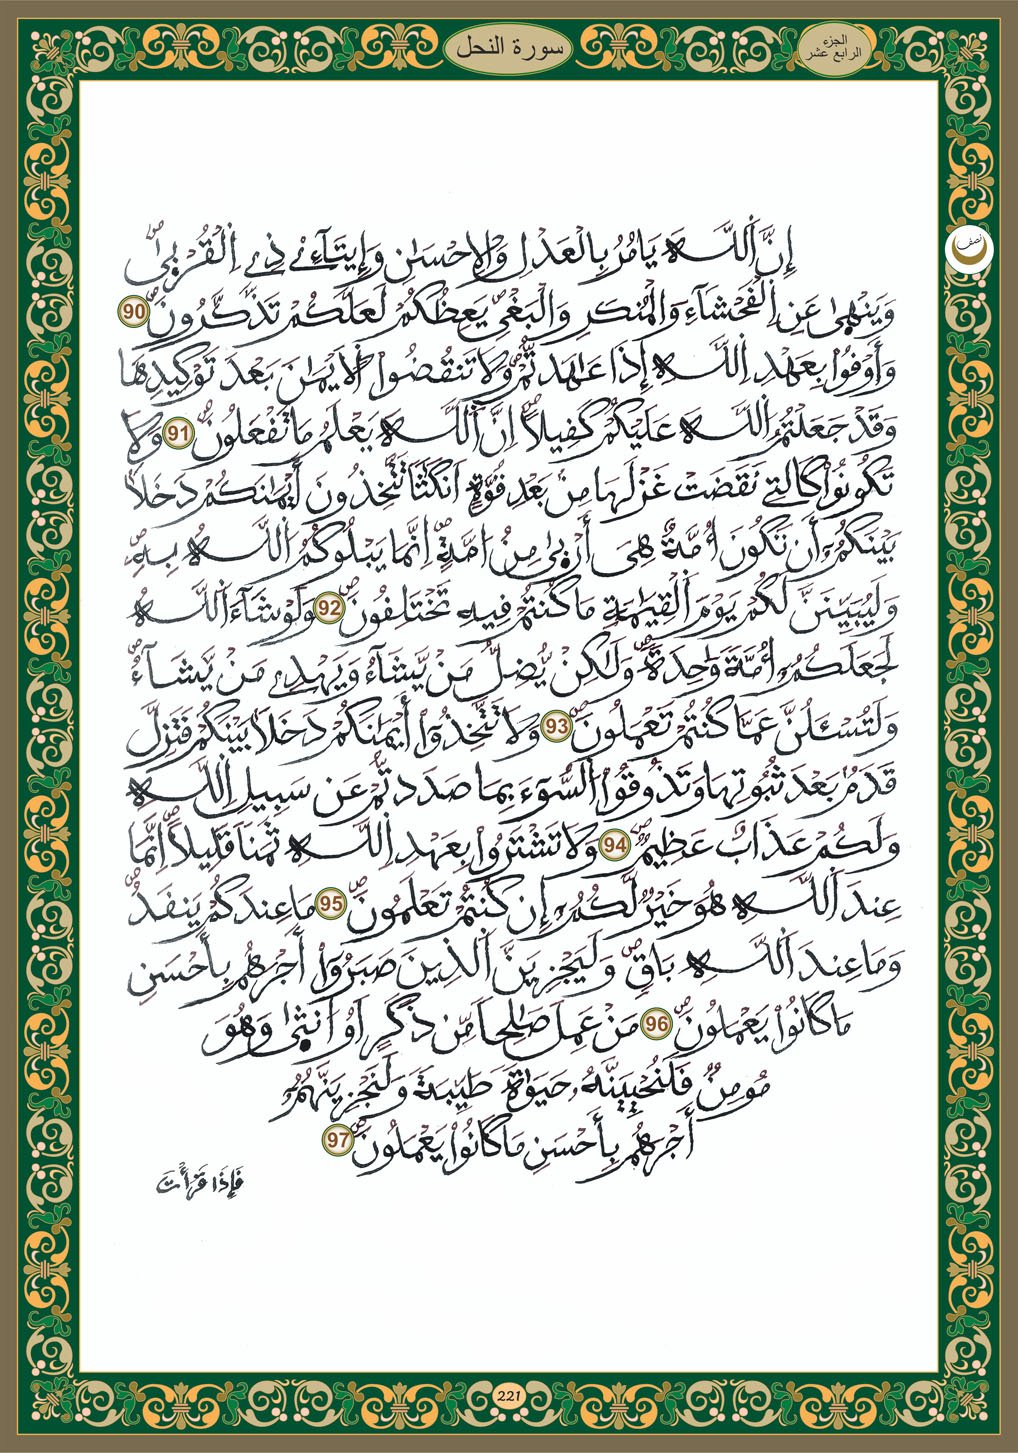 الجزء
الرابع عشر
سورة النحل
نصف
إِنَّ اَللَّهَ يَامُرُ بِالْعَدْلِ وَالِاحْسَٰنِ وَإِيتَآءِےْ ذِے اِلْقُرْب۪يٰ
وَيَنْه۪يٰ عَنِ اِلْفَحْشَآءِ وَالْمُنكَرِ وَالْبَغْيِ يَعِظُكُمْ لَعَلَّكُمْ تَذَّكَّرُونَ 90
وَأَوْفُوا بِعَهْدِ اِللَّهِ إِذَا عَٰهَدتُّمْ وَلَا تَنقُضُوا اُلَايْمَٰنَ بَعْدَ تَوْكِيدِهَا
وَقَدْ جَعَلْتُمُ اُللَّهَ عَلَيْكُمْ كَفِيلاً اِنَّ اَللَّهَ يَعْلَمُ مَا تَفْعَلُونَ 91 وَلَا
تَكُونُوا كَالتِے نَقَضَتْ غَزْلَهَا مِنۢ بَعْدِ قُوَّةٍ اَنكَٰثاً تَتَّخِذُونَ أَيْمَٰنَكُمْ دَخَلاَۢ
بَيْنَكُمُۥٓ أَن تَكُونَ أُمَّةٌ هِيَ أَرْب۪يٰ مِنُ امَّةٍ اِنَّمَا يَبْلُوكُمُ اُللَّهُ بِهِۦ
وَلَيُبَيِّنَنَّ لَكُمْ يَوْمَ اَلْقِيَٰمَةِ مَا كُنتُمْ فِيهِ تَخْتَلِفُونَ 92 وَلَوْ شَآءَ اَللَّهُ
لَجَعَلَكُمُۥٓ أُمَّةً وَٰحِدَةً وَلَٰكِنْ يُّضِلُّ مَنْ يَّشَآءُ وَيَهْدِے مَنْ يَّشَآءُ
وَلَتُسْـَٔلُنَّ عَمَّا كُنتُمْ تَعْمَلُونَ 93 وَلَا تَتَّخِذُوٓا أَيْمَٰنَكُمْ دَخَلاَۢ بَيْنَكُمْ فَتَزِلَّ
قَدَمُۢ بَعْدَ ثُبُوتِهَا وَتَذُوقُوا اُلسُّوٓءَ بِمَا صَدَدتُّمْ عَن سَبِيلِ اِللَّهِ
وَلَكُمْ عَذَابٌ عَظِيمٌ 94 وَلَا تَشْتَرُوا بِعَهْدِ اِللَّهِ ثَمَناً قَلِيلاً اِنَّمَا
عِندَ اَللَّهِ هُوَ خَيْرٌ لَّكُمُۥٓ إِن كُنتُمْ تَعْلَمُونَ 95 مَا عِندَكُمْ يَنفَدُ
وَمَا عِندَ اَللَّهِ بَاقٍ وَلَيَجْزِيَنَّ اَلذِينَ صَبَرُوٓا أَجْرَهُم بِأَحْسَنِ
مَا كَانُوا يَعْمَلُونَ 96 مَنْ عَمِلَ صَٰلِحاً مِّن ذَكَرٍ اَوُ انث۪يٰ وَهُوَ
مُومِنٌ فَلَنُحْيِيَنَّهُۥ حَيَوٰةً طَيِّبَةً وَلَنَجْزِيَنَّهُمُۥٓ
أَجْرَهُم بِأَحْسَنِ مَا كَانُوا يَعْمَلُونَ 97
فَإِذَا قَرَأْتَ
221